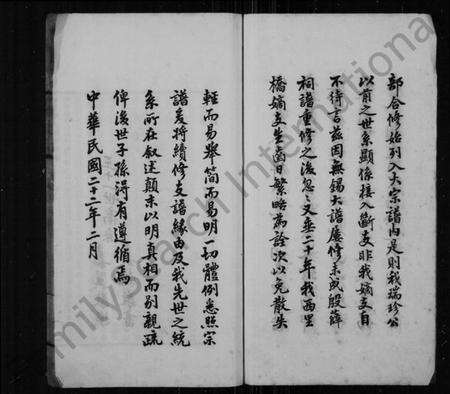 部合修始列入大宗譜內是則我瑞珍公
以前之世系顯係接入斷支非我嫡支自
不待言茲因無錫大譜屢修未成殷薛
祠譜重修之後忽忽又垂二十年我西里
橋嫡支生齒日繁略為詮次以免散失
輕而易舉簡而易明一切體例悉照宗
譜爰將續修支譜緣由及我先世之統
系所在叙述顛末以明真相而別親疏
俾後世子孫得有遵循焉
中華民國二十二年二月
milySearch International